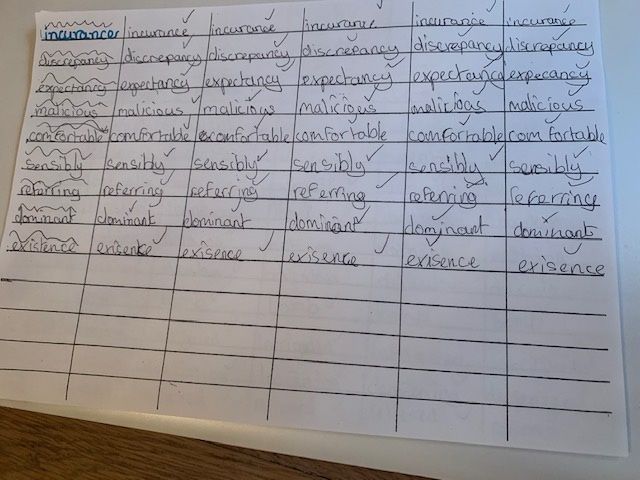 incurance incurance incurance incurance incurance incurance
discrepancy discrepancy discrepancy discrepancy discrepancy discrepancy
expectancy expectancy expectancy expectancy expectancy expecancy
malicious malicious malicious malicious malicious malicious
comfortable comfortable comfortable comfortable comfortable comfortable
sensibly sensibly sensibly sensibly sensibly sensibly
referring referring referring referring referring
dominant dominant dominant dominant dominant dominant
existence exisence exisence exisence exisence